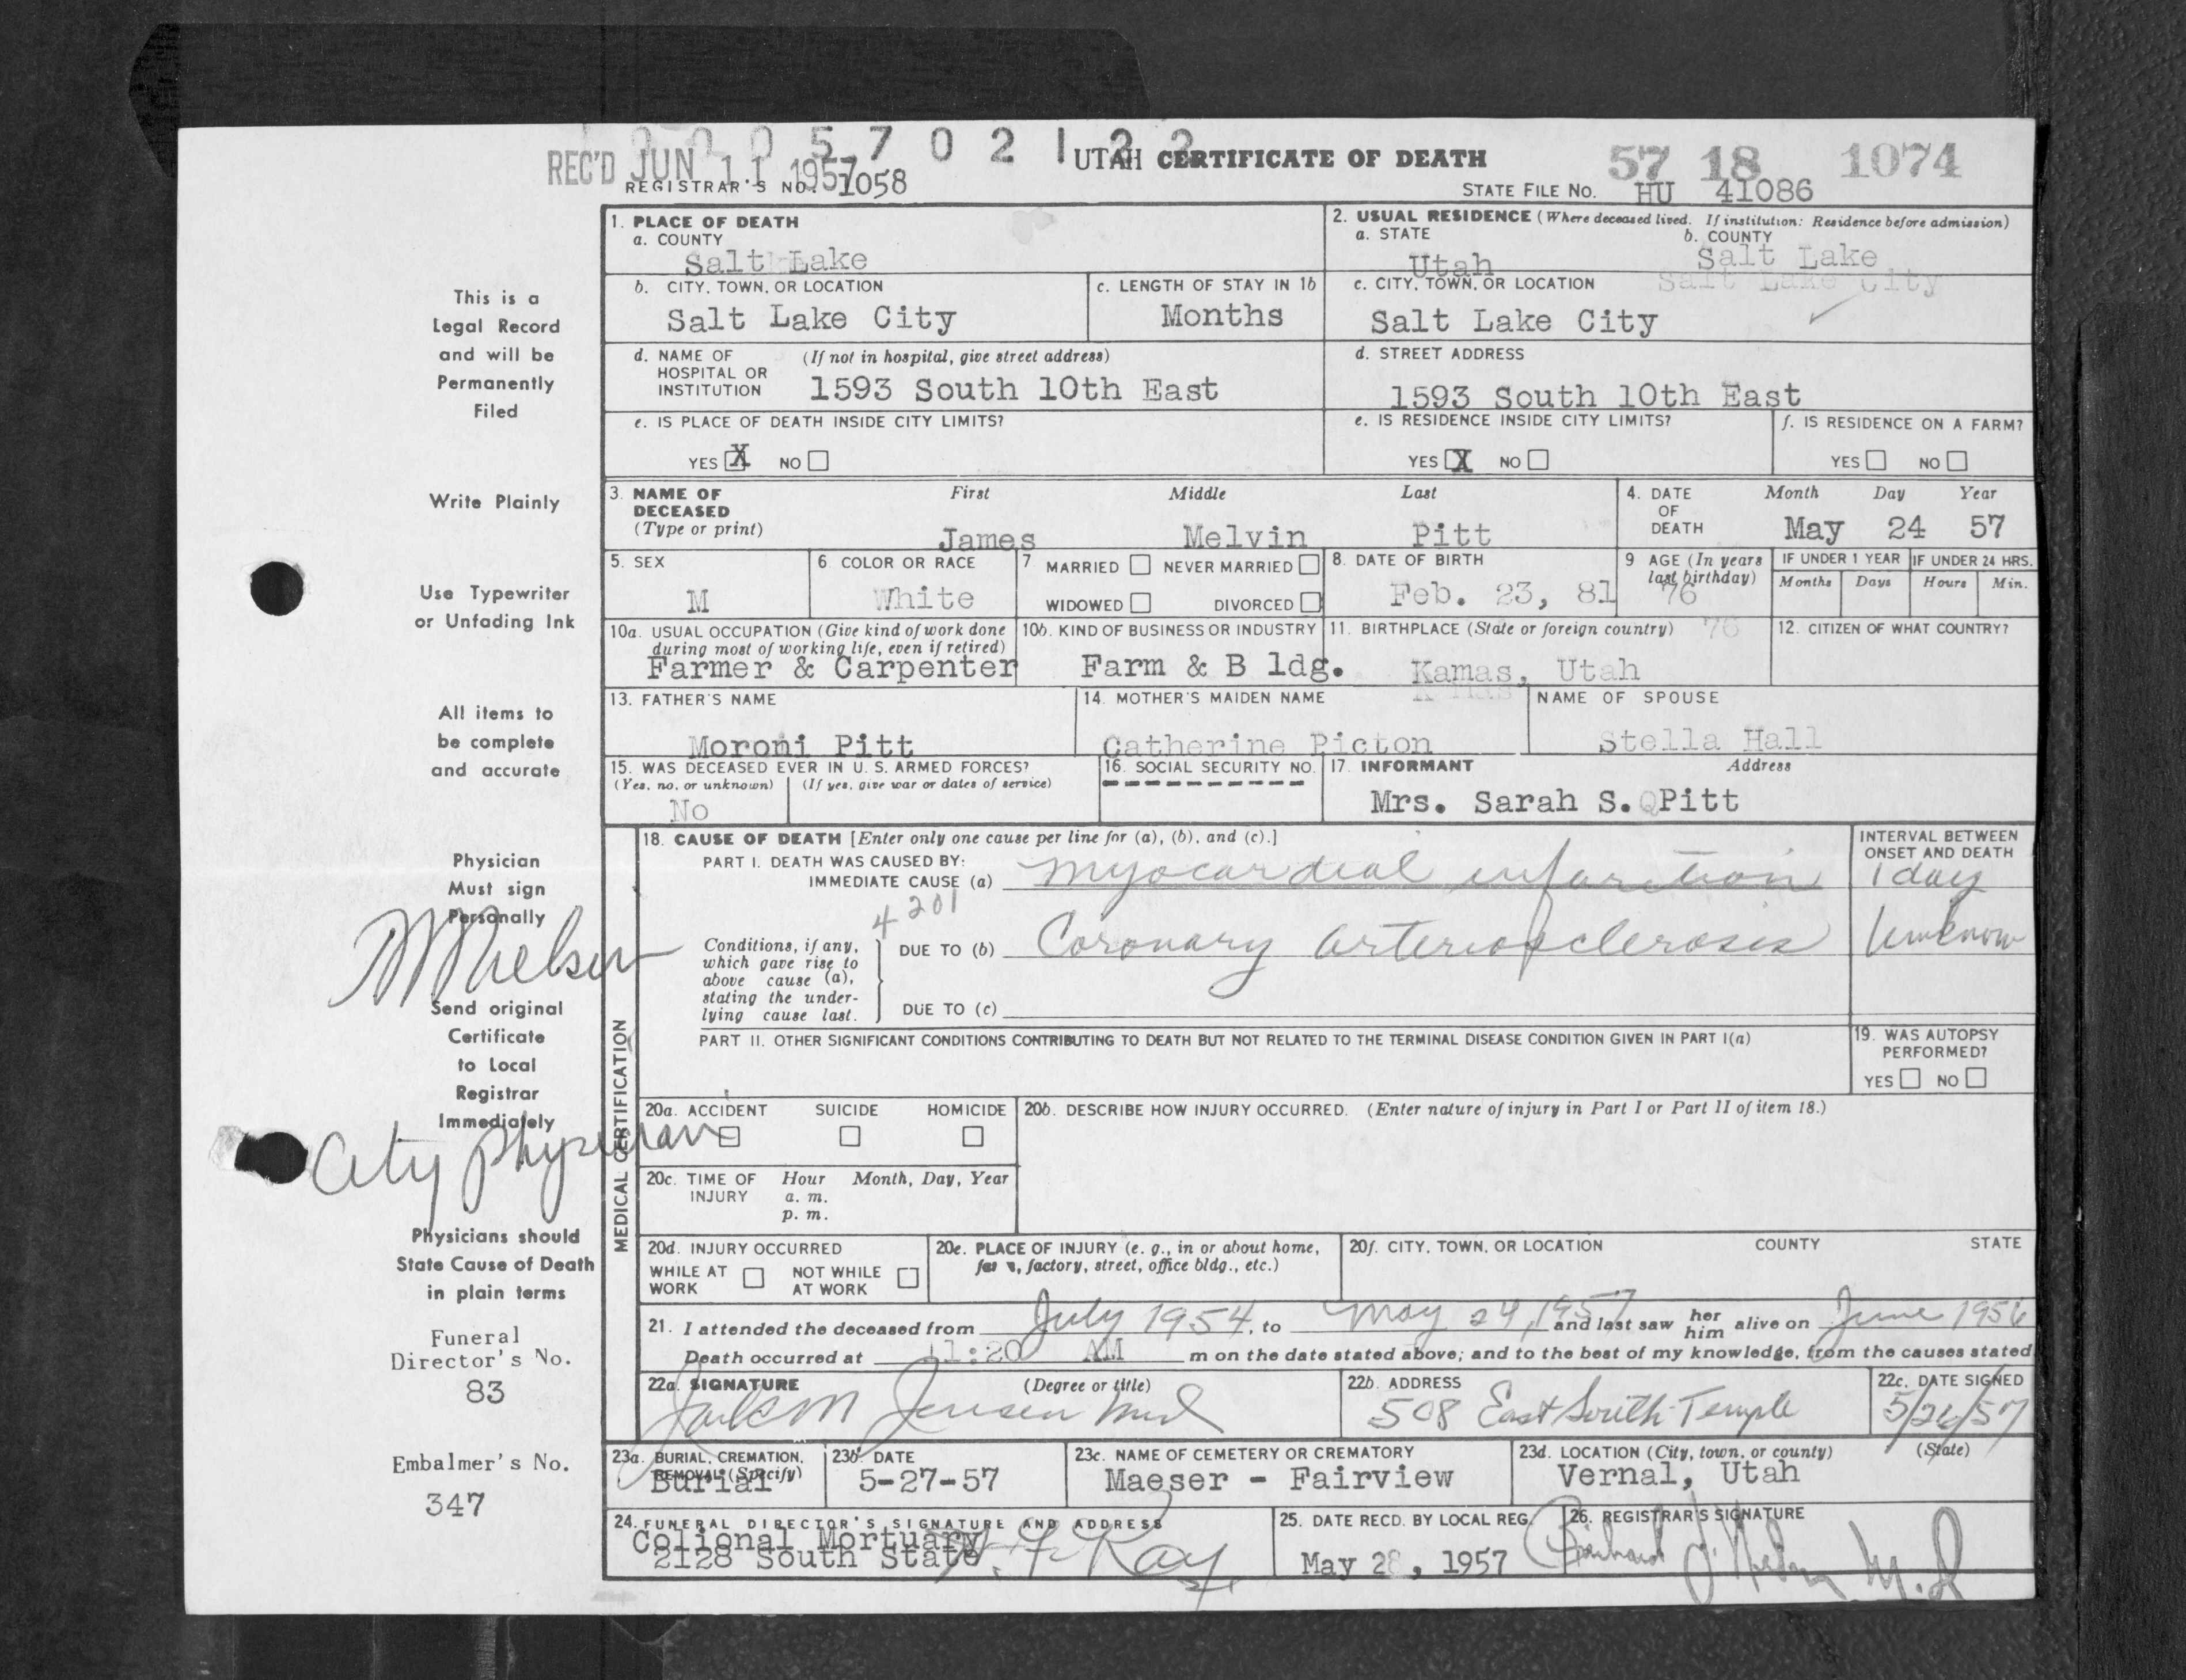 0 0 0 5 7 0 2 1 3 2
REC'D JUN 11 1957
UTAH CERTIFICATE OF DEATH
57 18 1074
REGISTRAR'S NO. 1058
STATE FILE NO. HU 41086
This is a
Legal Record
and will be
Permanently
Filed
Write Plainly
Use Typewriter
or Unfading Ink
All items to
be complete
and accurate
Physician
Must sign
Personally
Send original
Certificate
to Local
Registrar
Immediately
City Physician
Physicians should
State Cause of Death
in plain terms
Funeral
Director's No.
83
Embalmer's No.
347
1. PLACE OF DEATH
a. COUNTY
Salt Lake
2. USUAL RESIDENCE (Where deceased lived. If institution: Residence before admission)
a. STATE
Utah
b. COUNTY
Salt Lake
b. CITY, TOWN, OR LOCATION
Salt Lake City
c. LENGTH OF STAY IN 1b
Months
c. CITY, TOWN, OR LOCATION
Salt Lake City
Salt Lake City
d. NAME OF HOSPITAL OR INSTITUTION (If not in hospital, give street address)
1593 South 10th East
d. STREET ADDRESS
1593 South 10th East
e. IS PLACE OF DEATH INSIDE CITY LIMITS?
YES X NO
e. IS RESIDENCE INSIDE CITY LIMITS?
YES X NO
f. IS RESIDENCE ON A FARM?
YES NO
3. NAME OF DECEASED (Type or print)
First Middle Last
James Melvin Pitt
4. DATE OF DEATH
Month Day Year
May 24 57
5. SEX
M
6 COLOR OR RACE
White
7 MARRIED NEVER MARRIED
WIDOWED DIVORCED
8. DATE OF BIRTH
Feb. 23, 81
9 AGE (In years last birthday)
76
IF UNDER 1 YEAR
Months Days
IF UNDER 24 HRS.
Hours Min.
10a. USUAL OCCUPATION (Give kind of work done during most of working life, even if retired)
Farmer & Carpenter
10b. KIND OF BUSINESS OR INDUSTRY
Farm & B ldg.
11. BIRTHPLACE (State or foreign country) 76
Kamas, Utah
12. CITIZEN OF WHAT COUNTRY?
13. FATHER'S NAME
Moroni Pitt
14. MOTHER'S MAIDEN NAME
Catherine Picton
NAME OF SPOUSE
Stella Hall
15. WAS DECEASED EVER IN U. S. ARMED FORCES?
(Yes, no, or unknown) (If yes, give war or dates of service)
No
16. SOCIAL SECURITY NO.
---------
17. INFORMANT Address
Mrs. Sarah S. Pitt
MEDICAL CERTIFICATION
18. CAUSE OF DEATH [Enter only one cause per line for (a), (b), and (c).]
INTERVAL BETWEEN ONSET AND DEATH
PART I. DEATH WAS CAUSED BY:
IMMEDIATE CAUSE (a) myocardial infarction 1 day
4201
Conditions, if any, which gave rise to above cause (a), stating the underlying cause last.
DUE TO (b) Coronary arteriosclerosis Unknown
DUE TO (c)
PART II. OTHER SIGNIFICANT CONDITIONS CONTRIBUTING TO DEATH BUT NOT RELATED TO THE TERMINAL DISEASE CONDITION GIVEN IN PART I(a)
19. WAS AUTOPSY PERFORMED?
YES NO
20a. ACCIDENT SUICIDE HOMICIDE
20b. DESCRIBE HOW INJURY OCCURRED. (Enter nature of injury in Part I or Part II of item 18.)
20c. TIME OF INJURY Hour Month, Day, Year
a. m.
p. m.
20d. INJURY OCCURRED
WHILE AT WORK NOT WHILE AT WORK
20e. PLACE OF INJURY (e. g., in or about home, farm, factory, street, office bldg., etc.)
20f. CITY, TOWN, OR LOCATION COUNTY STATE
21. I attended the deceased from July 1954, to May 24, 1957 and last saw her him alive on June 1956
Death occurred at 11:20 AM m on the date stated above; and to the best of my knowledge, from the causes stated
22a. SIGNATURE (Degree or title)
Jack M Jensen MD
22b. ADDRESS
508 East South Temple
22c. DATE SIGNED
5/26/57
23a. BURIAL, CREMATION, REMOVAL (Specify)
Burial
23b. DATE
5-27-57
23c. NAME OF CEMETERY OR CREMATORY
Maeser - Fairview
23d. LOCATION (City, town, or county) (State)
Vernal, Utah
24. FUNERAL DIRECTOR'S SIGNATURE AND ADDRESS
Colional Mortuary
2128 South State
25. DATE RECD. BY LOCAL REG.
May 28, 1957
26. REGISTRAR'S SIGNATURE
M.D